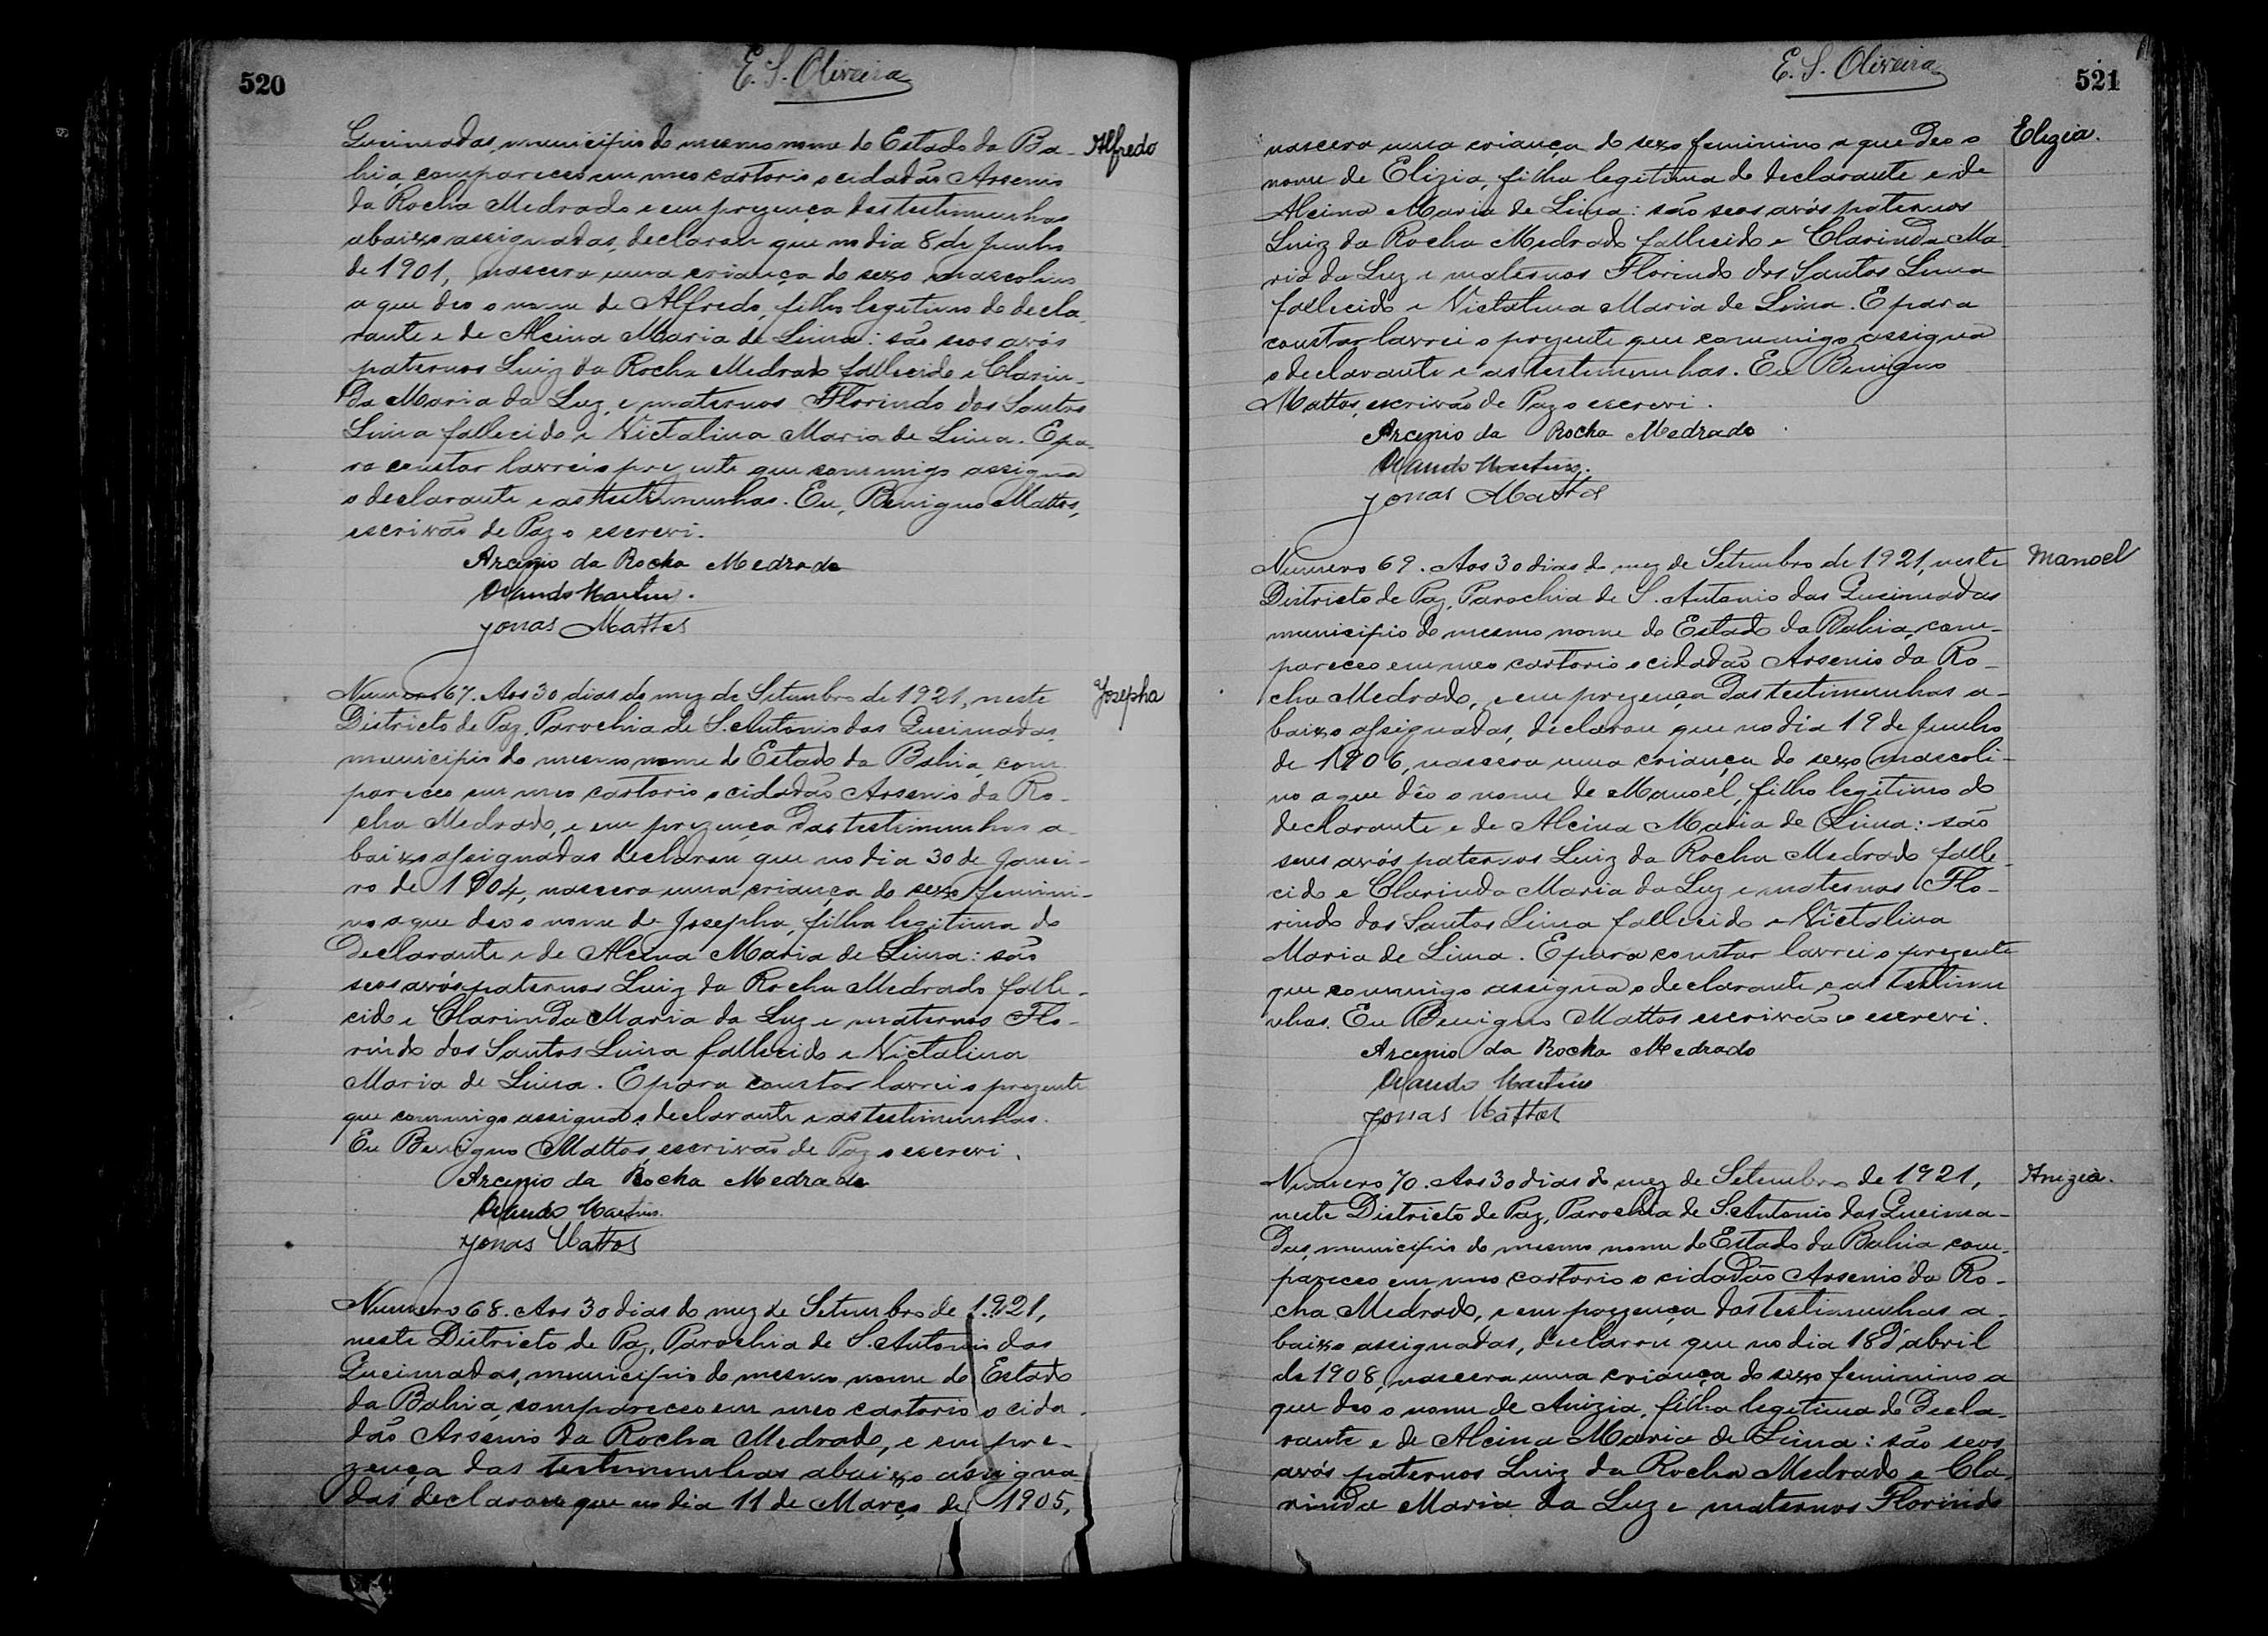 520
E. S. Oliveira
Queimadas, municipio do mesmo nome do Estado da Ba-
Alfredo
hia, compareceo em meo cartorio o cidadão Arsenio
da Rocha Medrado e em prezença das testimunhas
abaixo assignadas, declarou que no dia 8 de Junho
de 1901, nascera uma criança do sexo mascolino
a que deo o nome de Alfredo, filho legitimo do decla-
rante e de Alcina Maria de Lima: são seos avós
paternos Luiz da Rocha Medrado fallecido e Clarin-
da Maria da Luz, e maternos Florindo dos Santos
Lima fallecido e Victalina Maria de Lima. E pa-
ra constar lavrei o prezente que commigo assigna
o declarante e as testimunhas. Eu, Benigno Mattos,
escrivão de Paz o escrevi.
Arcenio da Rocha Medrado
Orlando Martins.
Jonas Mattos
Numero 67. Aos 30 dias do mez de Setembro de 1921, neste
Josepha
Districto de Paz, Parochia de S. Antonio das Queimadas,
municipio do mesmo nome do Estado da Bahia, com-
pareceo em meo cartorio o cidadão Arsenio da Ro-
cha Medrado, e em prezença das testimunhas a-
baixo assignadas declarou que no dia 30 de Janei-
ro de 1904, nascera uma criança do sexo femini-
no a que deo o nome de Josepha, filha legitima do
declarante e de Alcina Maria de Lima: são
seos avós paternos Luiz da Rocha Medrado falle-
cido e Clarinda Maria da Luz e maternos Flo-
rindo dos Santos Lima fallecido e Victalina
Maria de Lima. E para constar lavrei o prezente
que commigo assigna o declarante e as testimunhas.
Eu Benigno Mattos, escrivão de Paz o escrevi.
Arcenio da Rocha Medrado
Orlando Martins.
Jonas Mattos
Numero 68. Aos 30 dias do mez de Setembro de 1921,
neste Districto de Paz, Parochia de S. Antonio das
Queimadas, municipio do mesmo nome do Estado
da Bahia, compareceo em meo cartorio o cida-
dão Arsenio da Rocha Medrado, e em pre-
zença das testimunhas abaixo assigna
das declarou que no dia 11 de Março de 1905,
E. S. Oliveira
521
nascera uma criança do sexo feminino a que deo o
Elizia.
nome de Elizia, filha legitima do declarante e de
Alcina Maria de Lima: são seos avós paternos
Luiz da Rocha Medrado fallecido e Clarinda Ma-
ria da Luz e maternos Florindo dos Santos Lima
fallecido e Victalina Maria de Lima. E para
constar lavrei o prezente que commigo assigna
o declarante e as testimunhas. Eu Benigno
Mattos, escrivão de Paz o escrevi.
Arcenio da Rocha Medrado
Orlando Martins.
Jonas Mattos
Numero 69. Aos 30 dias do mez de Setembro de 1921, neste
Manoel
Districto de Paz, Parochia de S. Antonio das Queimadas
municipio do mesmo nome do Estado da Bahia, com-
pareceo em meo cartorio o cidadão Arsenio da Ro-
cha Medrado, e em prezença das testimunhas a-
baixo assignadas, declarou que no dia 19 de Junho
de 1906, nascera uma criança do sexo mascoli-
no a que dêo o nome de Manoel, filho legitimo do
declarante e de Alcina Maria de Lima: são
seus avós paternos Luiz da Rocha Medrado falle-
cido e Clarinda Maria da Luz e maternos Flo-
rindo dos Santos Lima fallecido e Victalina
Maria de Lima. E para constar lavrei o prezente
que commigo assigna o declarante e as testimu
nhas. Eu Benigno Mattos escrivão o escrevi.
Arcenio da Rocha Medrado
Orlando Martins
Jonas Mattos
Numero 70. Aos 30 dias do mez de Setembro de 1921,
Anizia.
neste Districto de Paz, Parochia de S. Antonio das Queima-
das, municipio do mesmo nome do Estado da Bahia com-
pareceo em meo cartorio o cidadão Arsenio da Ro-
cha Medrado, e em prezença das testimunhas a-
baixo assignadas, declarou que no dia 18 d'abril
de 1908, nascera uma criança do sexo feminino a
que deo o nome de Anizia, filha legitima do decla-
rante e de Alcina Maria de Lima: são seos
avós paternos Luiz da Rocha Medrado e Cla-
rinda Maria da Luz e maternos Florindo